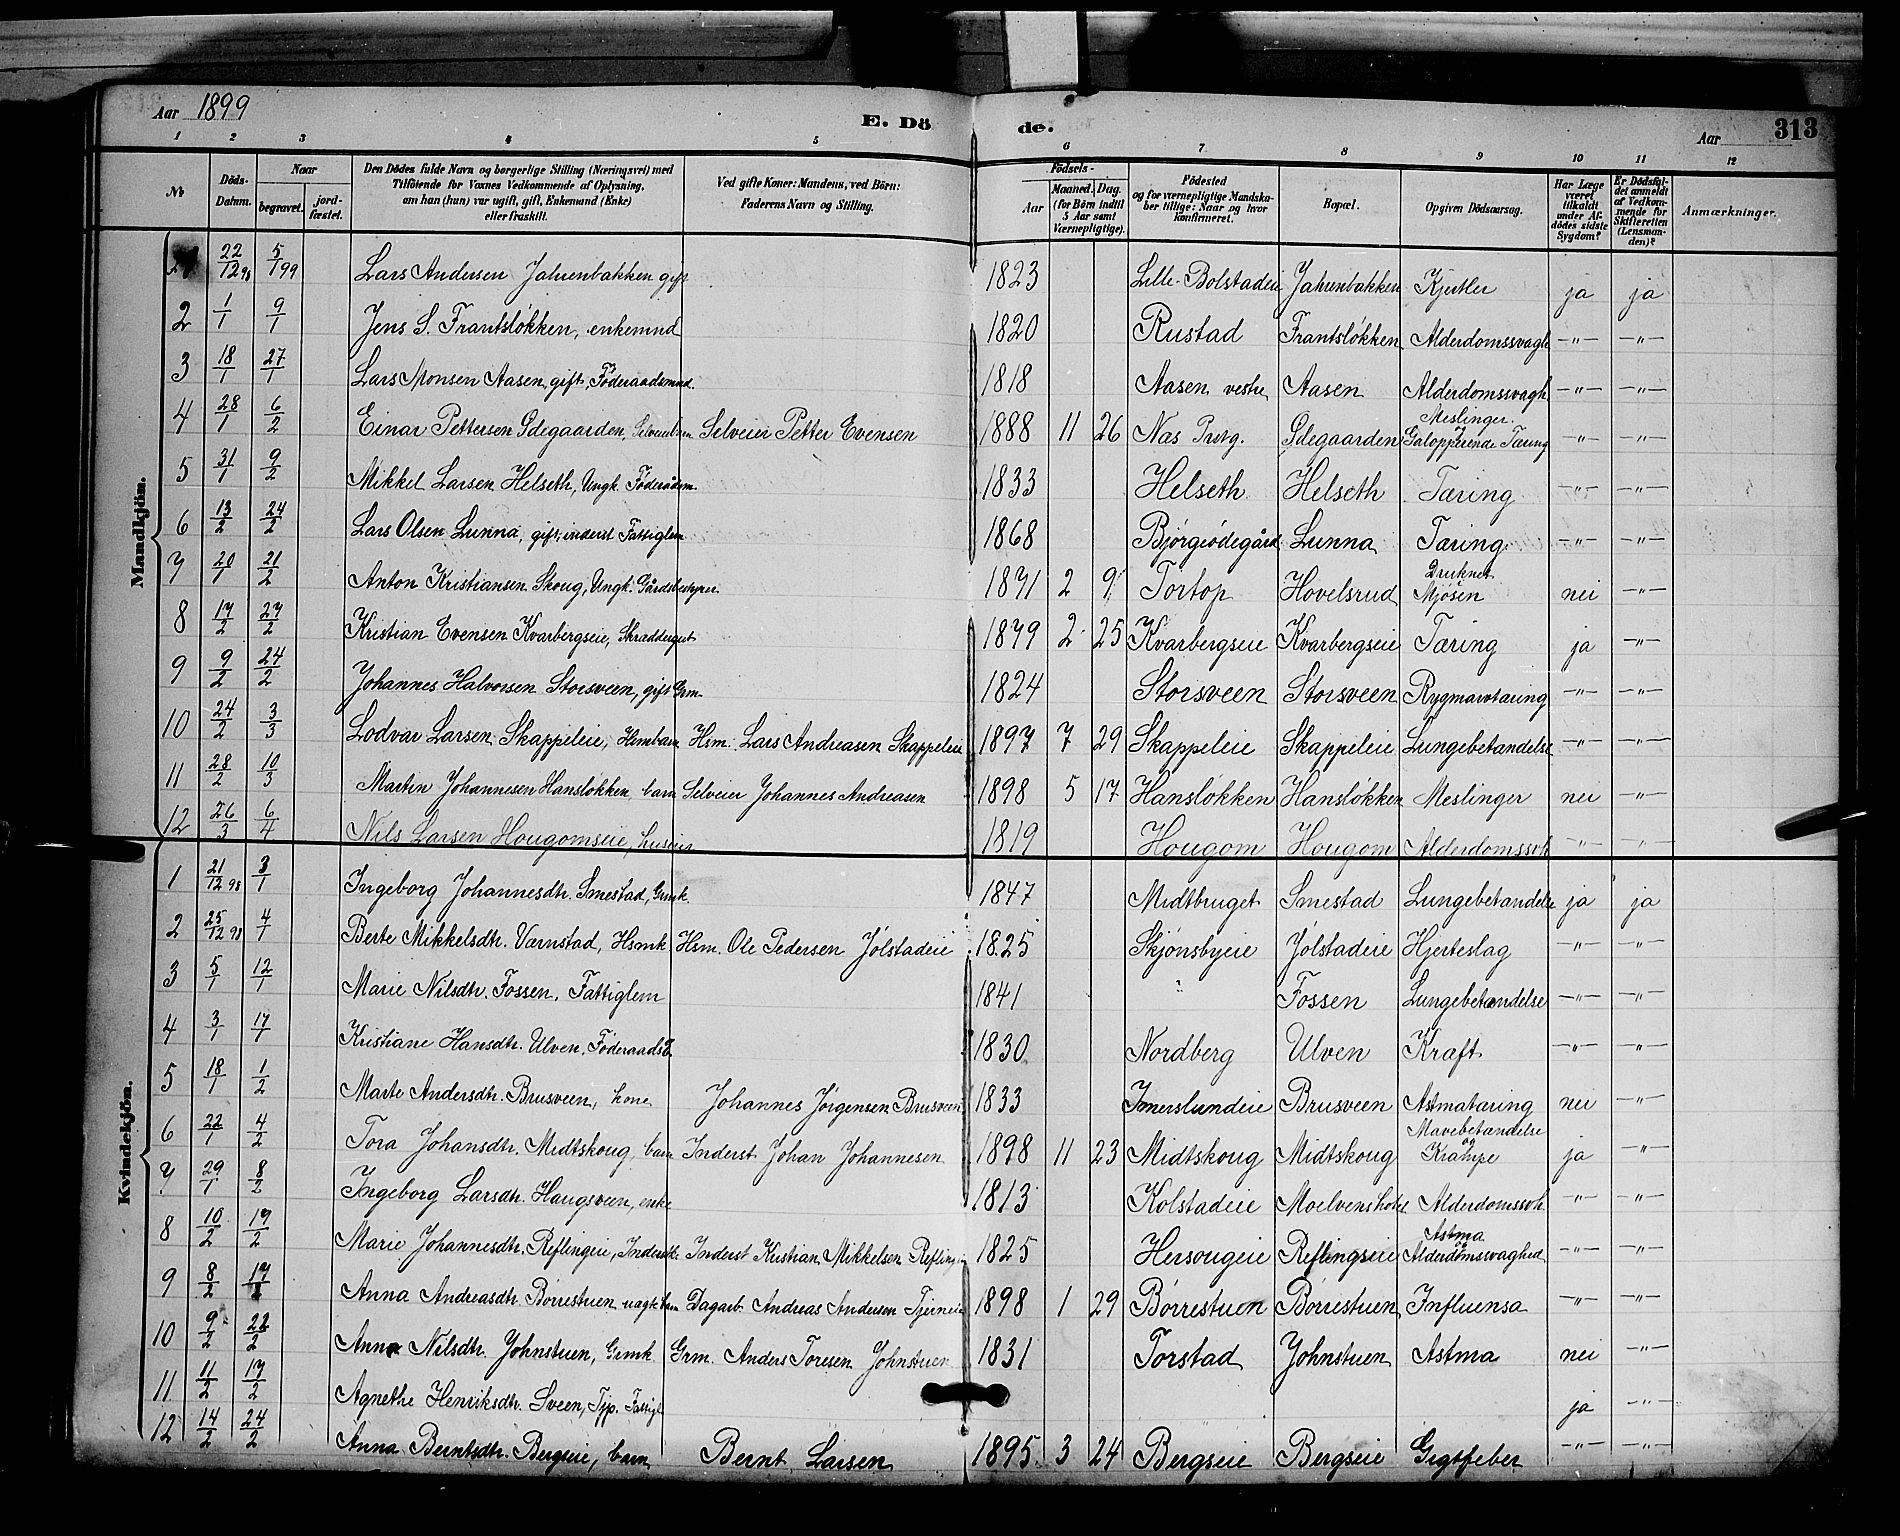 Aar 1899
E. Dö
de.
Aar
313
1 2 3 4 5 6 7 8 9 10 11 12
№
Döds-Datum.
Naar
begravet.
jord-fæstet.
Den Dödes fulde Navn og borgerlige Stilling (Næringsvei) med
Tilföiende for Voxnes Vedkommende af Oplysning,
om han (hun) var ugift, gift, Enkemand (Enke)
eller fraskilt.
Ved gifte Koner: Mandens, ved Börn:
Faderens Navn og Stilling.
Födsels-
Aar
Maaned.
Dag.
(for Börn indtil
5 Aar samt
Værnepligtige).
Födested
og for værnepligtige Mandska-
ber tillige: Naar og hvor
konfirmeret.
Bopæl.
Opgiven Dödsaarsag.
Har Læge
været
tilkaldt
under Af-
dödes sidste
Sygdom?
Er Dödsfal-
det anmeldt
af Vedkom-
mende for
Skifteretten
(Lensman-
den)?
Anmærkninger.
Mandkjön.
22/12 98 5/1 99 Lars Andersen Jahrenbakken gift 1823 Lille-Bolstadeie Jahrenbakken Kjertler ja ja
2 1/1 9/1 Jens S. Frantsløkken, enkemnd 1820 Rustad Frantsløkken Alderdomssvagh —"— —"—
3 18/1 27/1 Lars Monsen Aasen, gift, Føderaadsmnd. 1818 Aasen vestre Aasen Alderdomssvagh. —"— —"—
4 28/1 6/2 Einar Pettersen Ødegaarden, Selveierbarn Selveier Petter Evensen 1888 11 26 Næs Prstg. Ødegaarden Meslinger og Galopperende Tæring —"— —"—
5 31/1 9/2 Mikkel Larsen Helseth, Ungk. Føderådsm. 1833 Helseth Helseth Tæring —"— —"—
6 13/2 24/2 Lars Olsen Lunna, gift, inderst Fattiglem 1868 Bjørgeødegård Lunna Tæring —"— —"—
7 20/1 21/2 Anton Kristiansen Skoug, Ungk. Gårdsbestyrer. 1871 2 9 Tortop Hovelsrud Druknet Mjøsen nei —"—
8 17/2 27/2 Kristian Evensen Kvarbergseie, Skræddergut 1879 2 25 Kvarbergseie Kvarbergseie Tæring ja —"—
9 9/2 24/2 Johannes Halvorsen Storsveen, gift Grm. 1824 Storsveen Storsveen Rygmarvtæring —"— —"—
10 24/2 3/3 Lodvar Larsen Skappeleie, Hsmbarn Hsm. Lars Andreasen Skappeleie 1897 7 29 Skappeleie Skappeleie Lungebetændelse —"— —"—
11 28/2 10/3 Martin Johannesen Hansløkken, barn Selveier Johannes Andreasen 1898 5 17 Hansløkken Hansløkken Meslinger nei —"—
12 26/3 6/4 Nils Larsen Hougomseie, huseier 1819 Hougom Hougom Alderdomssvh. —"— —"—
Kvindekjön.
1 21/12 98 3/1 Ingeborg Johannesdtr. Smestad, Grmk. 1847 Midtbruget Smestad Lungebetændelse ja ja
2 25/12 98 4/1 Berte Mikkelsdtr. Værnstad, Hsmk Hsm. Ole Pedersen Jølstadeie 1825 Skjønsbyeie Jølstadeie Hjerteslag —"— —"—
3 5/1 12/1 Marie Nilsdtr. Fossen, Fattiglem 1841 " Fossen Lungebetændelse —"— —"—
4 3/1 17/1 Kristiane Hansdtr. Ulven, Føderaads 1830 Nordberg Ulven Kræft —"— —"—
5 18/1 1/2 Marte Andersdtr. Brusveen, kone Johannes Jørgensen Brusveen 1833 Imerslundeie Brusveen Astmatæring nei —"—
6 22/1 4/2 Tora Johansdtr. Midtskoug, barn Inderst Johan Johannesen 1898 11 23 Midtskoug Midtskoug Mavebetændelse og Krampe ja —"—
7 29/1 8/2 Ingeborg Larsdtr. Haugsveen, enke 1813 Kolstadeie Moelvenshotel Alderdomssvh. —"— —"—
8 10/2 17/2 Marie Johannesdtr. Reflingeie, Inderstk. Inderst Kristian Mikkelsen Reflingeie 1825 Hersougeie Reflingseie Astma og Alderdomssvaghed —"— —"—
9 8/2 17/2 Anna Andreasdtr. Børrestuen uægte barn Dagarb. Andreas Andersen Tjerneie 1898 1 29 Børrestuen Børrestuen Influensa —"— —"—
10 9/2 22/2 Anne Nilsdtr. Johnstuen, Grmk Grm. Anders Toresen Johnstuen 1831 Torstad Johnstuen Astma nei —"—
11 11/2 17/2 Agnethe Henriksdtr. Sveen, Tjp. Fattigl ja —"—
12 14/2 24/2 Anna Berntsdtr. Bergseie, barn Bernt Larsen 1895 3 24 Bergseie Bergseie Gigtfeber —"— —"—